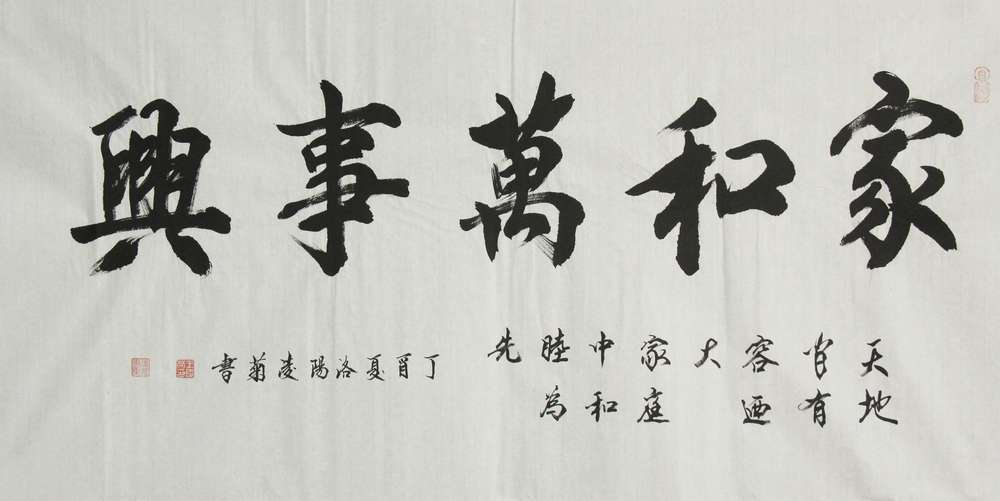 家和萬事興
天地間有容迺大
家庭中和睦為先
丁酉夏洛陽凌菊書